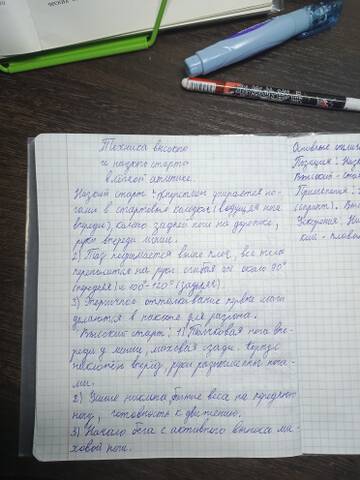 Техника высокого
и низкого старта
в лёгкой атлетике.
Низкий старт: 1) Спортсмен упирается но-
гами в стартовые колодки (ведущая нога
впереди), колено задней ноги на дорожке,
руки впереди линии.
2) Таз поднимается выше плеч, вес тела
переносится на руки. около 90°
(передняя) и 100°-120° (задняя).
3) Энергичное отталкивание первые шаги
делаются в наклоне для разгона.
Высокий старт: 1) Толчковая нога впе-
реди у линии, маховая сзади. Корпус
наклонён вперёд, руки разноимённы нога-
ми.
2) Ниже наклон, больше веса на переднюю
ногу, готовность к движению.
3) Начало бега с активного выноса ма-
ховой ноги.
Основные отли
Позиция: Низ
Высокий - ст
Применение:
(спринт). Выс
Ускорение: Ни
кий - плав